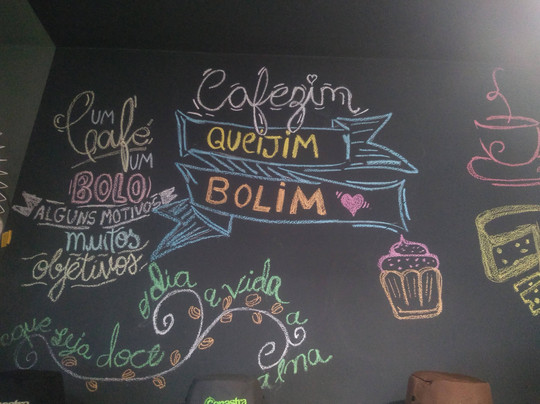 UM
Café
UM
BOLO
ALGUNS MOTIVOS
MUITOS
objetivos
Cafezim
QUEIJIM
BOLIM
que seja doce
o dia a vida
a
alma
Canastra